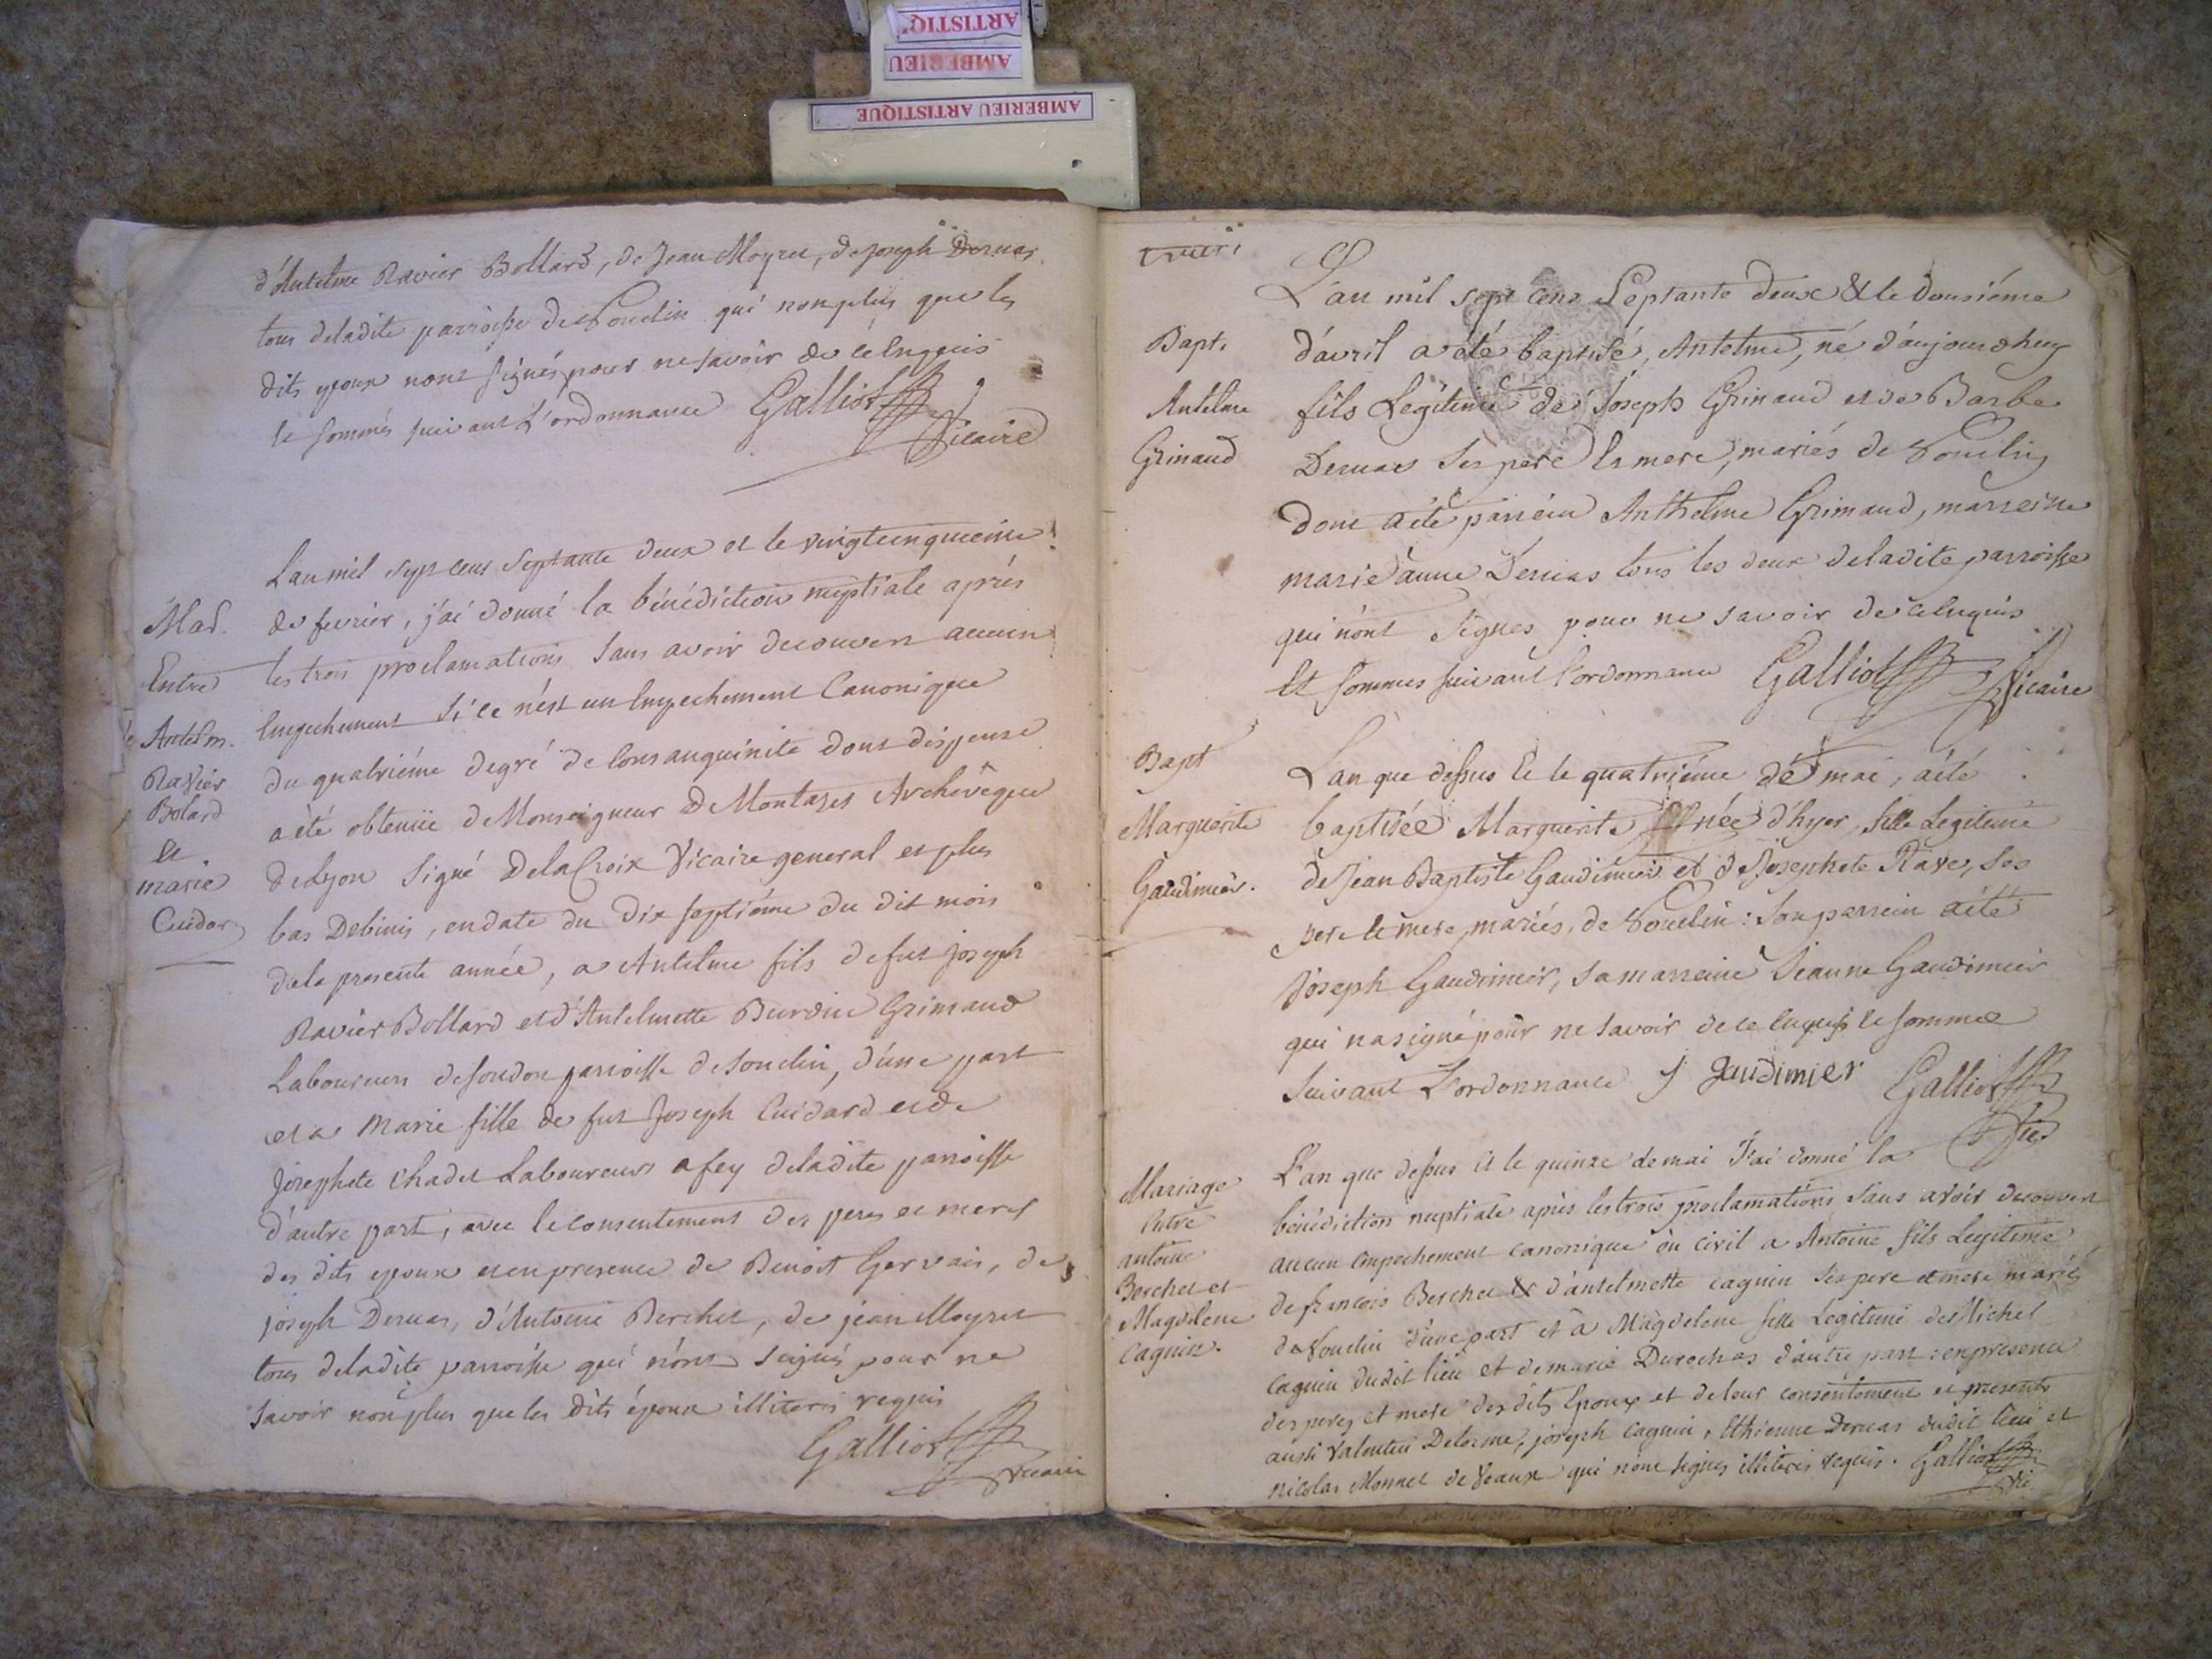 ARTISTIQ
AMBERIEU
AMBERIEU ARTISTIQUE
d'Antelme Ravier Bollard, de Jean Moyret, de joseph Deruas
tous deladite parroisse de Souclin qui nonplus que les
dits epoux n'ont signés pour ne savoir de ce Enquis
et sommés suivant L'ordonnance Galliot
Vicaire
Mar.
Entre
Antelm.
Ravier
Bolard
et
marie
Cuidar
L'an mil sept cens Septante deux et le vingtcinquieme
de fevrier, j'ai donné la bénédiction nuptiale après
les trois proclamations Sans avoir decouvert aucun
Empechement Si ce n'est un Empechement Canonique
du quatriéme degré de Consanguinité dont dispense
a été obtenüe de Monseigneur De Montazet Archevêque
de Lyon Signé DelaCroix Vicaire general et plus
bas Debinis, en date du dix septiéme du dit mois
dela presente année, a Antelme fils de fut joseph
Ravier Bollard et d'Antelmette Burdin Grimaud
Laboureurs de soudon parroisse de Souclin, d'une part
et a Marie fille de fut Joseph Cuidard et de
Josephete Chadet Laboureurs a fey deladite parroisse
d'autre part, avec le consentement des peres et meres
des dits epoux et en presence de Benoit Gervais, de
joseph Deruas, d'Antoine Berchet, de jean Moyret
tous deladite parroisse qui n'ont Signés pour ne
savoir nonplus que les dits époux illiteris requis
Galliot
vicaire
Bapt.
Antelme
Grinaud
L'an mil sept cens Septante deux & le dousiéme
d'avril a été baptisé, Antelme, né d'aujourdhuy
fils Legitime de Joseph Grinaud et de Barbe
Deruas Ses pere Et mere, mariés de Souclin
dont a été parrein Anthelme Grimaud, marreine
marie d'anne Deruas tous les deux deladite parroisse
qui n'ont Signes pour ne savoir de ce Enquis
Et sommes suivant l'ordonnance Galliot Vicaire
Bapt
Marguerite
Gaudimier.
L'an que dessus Et le quatriéme de mai, a été
baptisée Marguerite née d'hyer, fille Legitime
de Jean Baptiste Gaudimier et de Josephete Rave, Ses
pere Et mere, mariés, de Souclin: Son parrein a été
Joseph Gaudimier, Sa marreine Jeanne Gaudimier
qui n'a signé pour ne savoir de ce Enquise Et sommee
Suivant L'ordonnance J gaudimier Galliot
Vic
Mariage
Entre
antoine
Berchet et
Magdelene
Cagnin.
L'an que dessus Et le quinze de mai J'ai donné la
bénédiction nuptiale après les trois proclamations Sans avoir decouvert
aucun Empechement canonique ou civil a Antoine fils Legitime
de francois Berchet & d'antelmette cagnin Ses pere et mere mariés
de Souclin d'une part et à Magdelene fille Legitime de Michel
Cagnin dudit lieu et de marie Duroches d'autre part: en presence
des peres et mere des dits Epoux et de leur consentement et presents
aussi Valentin Delorme, joseph cagnin, Ethienne Deruas dudit lieu et
nicolas Monnet de Vaux qui n'ont signes illiteris requis. Galliot
Vic